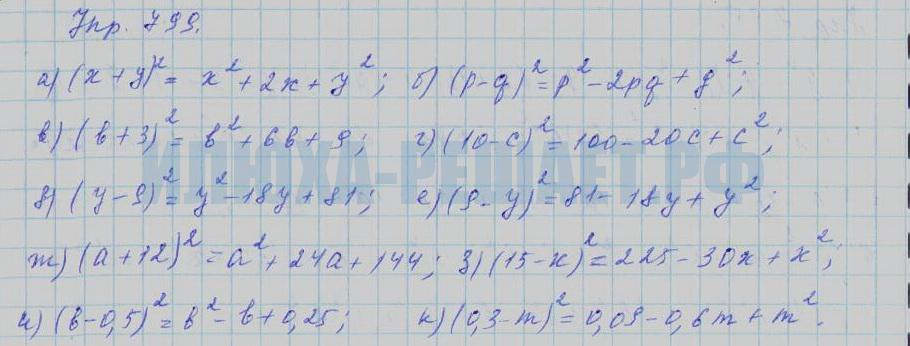 Упр. 799.
а) (x+y)² = x² + 2x + y²; б) (p-q)² = p² - 2pq + q²;
в) (b+3)² = b² + 6b + 9; г) (10-c)² = 100 - 20c + c²;
ИЛЮХА-РЕШАЕТ.РФ
д) (y-9)² = y² - 18y + 81; е) (9-y)² = 81 - 18y + y²;
ж) (a+12)² = a² + 24a + 144; з) (15-x)² = 225 - 30x + x²;
и) (b-0,5)² = b² - b + 0,25; к) (0,3-m)² = 0,09 - 0,6m + m².